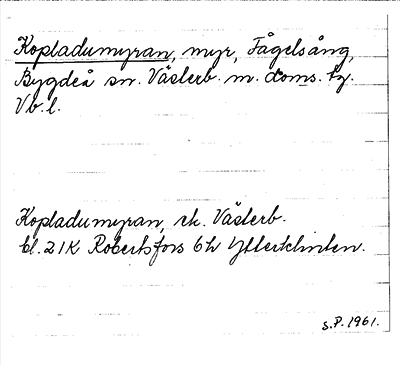 Kopladumyran, myr, Fågelsång,
Bygdeå sn. Västerb. m. doms. tg.
Vb. l.
Kopladumyran, ek. Västerb.
bl. 21K Robertsfors 6h Ytterklinten.
S.P. 1961.